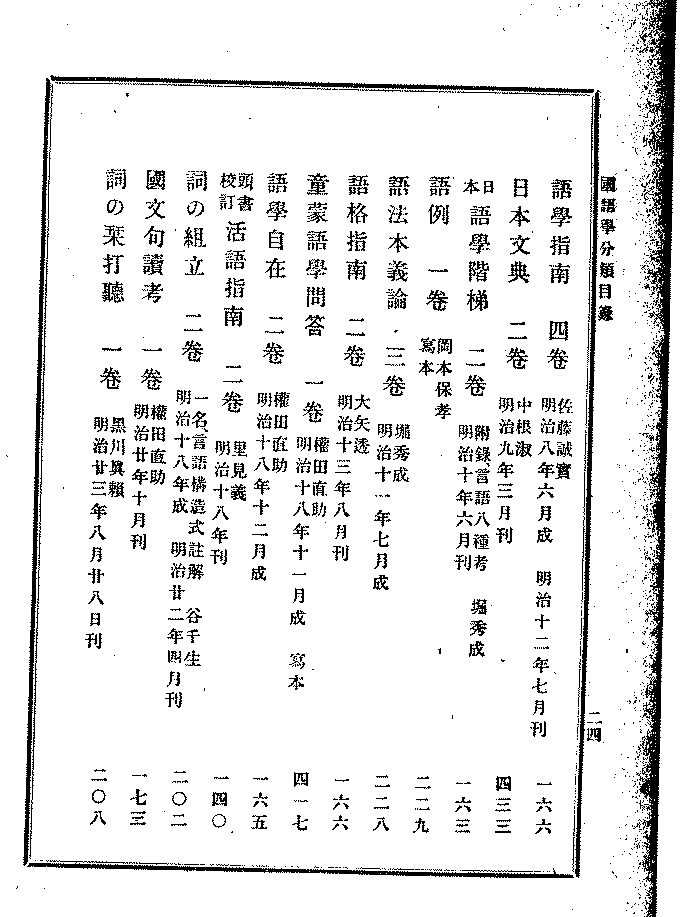 國語學分類目錄
二四
語學指南 四卷 佐藤誠實 明治八年六月成 明治十二年七月刊 一六六
日本文典 二卷 中根淑 明治九年三月刊 四三三
日本 語學階梯 二卷 附錄、言語八種考 堀秀成 明治十年六月刊 一六三
語例 一卷 岡本保孝 寫本 二二九
語法本義論 三卷 堀秀成 明治十一年七月成 二二八
語格指南 二卷 大矢透 明治十三年八月刊 一六六
童蒙語學問答 一卷 權田直助 明治十八年十一月成 寫本 四一七
語學自在 二卷 權田直助 明治十八年十二月成 一六五
頭書校訂 活語指南 二卷 里見義 明治十八年刊 一四〇
詞の組立 二卷 一名、言語構造式註解 谷千生 明治十八年成 明治廿二年四月刊 二〇二
國文句讀考 一卷 權田直助 明治廿年十月刊 一七三
詞の栞打聽 一卷 黑川眞賴 明治廿三年八月廿八日刊 二〇八